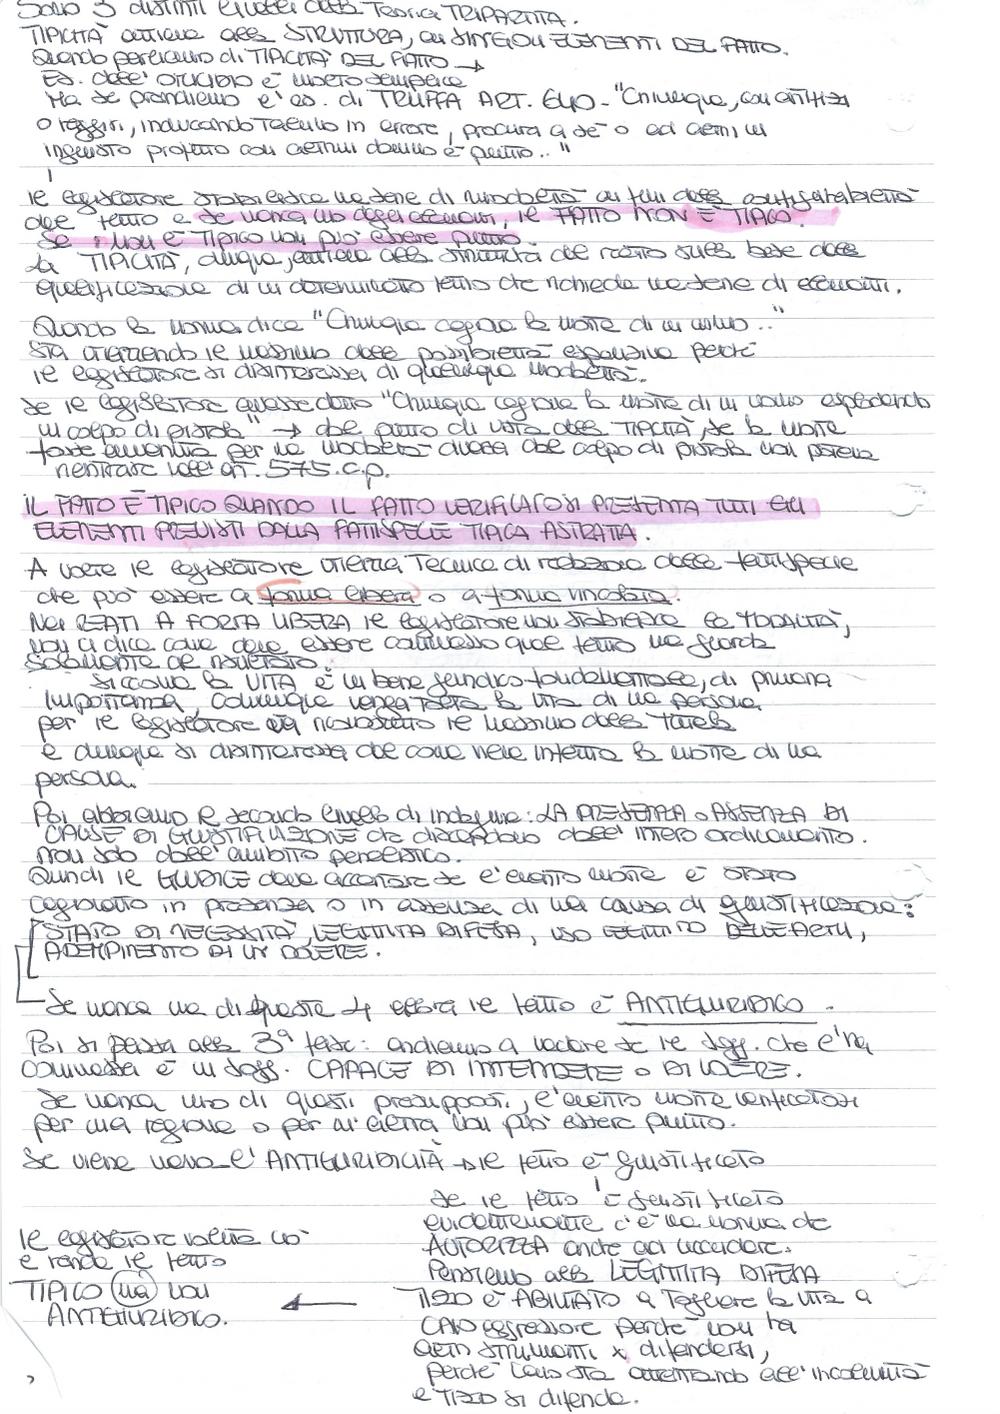 Sono 3 distinti livelli della Teoria TRIPARTITA.
TIPICITÀ attiene alla STRUTTURA, ai SINGOLI ELEMENTI DEL FATTO.
Quando parliamo di TIPICITÀ DEL FATTO →
Es. dell'OMICIDIO è molto semplice
Ma se prendiamo l'es. di TRUFFA ART. 640 - "Chiunque, con artifizi
o raggiri, inducendo taluno in errore, procura a sé o ad altri un
ingiusto profitto con altrui danno è punito.."
Il legislatore stabilisce una serie di modalità ai fini della configurabilità
del fatto e se manca uno degli elementi, il FATTO NON È TIPICO.
Se non è Tipico non può essere punito.
La TIPICITÀ, dunque, attiene alla struttura del reato sulla base della
qualificazione di un determinato fatto che richiede una serie di elementi.
Quando la norma dice "Chiunque cagiona la morte di un uomo.."
sta ritenendo il massimo della possibilità espansiva perché
il legislatore si disinteressa di qualunque modalità.
Se il legislatore avesse detto "Chiunque cagiona la morte di un uomo esplodendo
un colpo di pistola" → dal punto di vista della TIPICITÀ, se la morte
fosse avvenuta per una modalità diversa dal colpo di pistola non poteva
rientrare nell'art. 575 c.p.
IL FATTO È TIPICO QUANDO IL FATTO VERIFICATOSI PRESENTA TUTTI GLI
ELEMENTI PREVISTI DALLA FATTISPECIE TIPICA ASTRATTA.
A volte il legislatore utilizza Tecnica di redazione della fattispecie
che può essere a forma libera o a forma vincolata.
Nei REATI A FORMA LIBERA il legislatore non stabilisce la MODALITÀ,
non ci dice come deve essere commesso quel fatto ma guarda
solamente al risultato.
Siccome la VITA è un bene giuridico fondamentale, di primaria
importanza, comunque venga tolta la vita di una persona
per il legislatore va riconosciuto il massimo della Tutela
e dunque si disinteressa del come viene inferta la morte di una
persona.
Poi abbiamo il secondo livello di indagine: LA PRESENZA o ASSENZA DI
CAUSE DI GIUSTIFICAZIONE che discendono dall'intero ordinamento.
non solo dall'ambito penalistico.
Quindi il GIUDICE deve accertare se l'evento morte è stato
cagionato in presenza o in assenza di una causa di giustificazione:
STATO DI NECESSITÀ, LEGITTIMA DIFESA, USO LEGITTIMO DELLE ARMI,
ADEMPIMENTO DI UN DOVERE.
Se manca una di queste 4 allora il fatto è ANTIGIURIDICO.
Poi si passa alla 3ª fase: andiamo a vedere se il sogg. che l'ha
commessa è un sogg. CAPACE DI INTENDERE o DI VOLERE.
Se manca uno di questi presupposti, l'evento morte verificatosi
per una ragione o per un'altra non può essere punito.
Se viene meno l'ANTIGIURIDICITÀ → il fatto è giustificato
Se il fatto è giustificato
evidentemente c'è una norma che
AUTORIZZA anche ad uccidere.
Pensiamo alla LEGITTIMA DIFESA
TIZIO è ABILITATO a Togliere la vita a
CAIO aggressore perché non ha
altri strumenti x difendersi,
perché Caio sta attentando all'incolumità
e TIZIO si difende.
Il legislatore valuta ciò
e rende il fatto
TIPICO ma non
ANTIGIURIDICO.